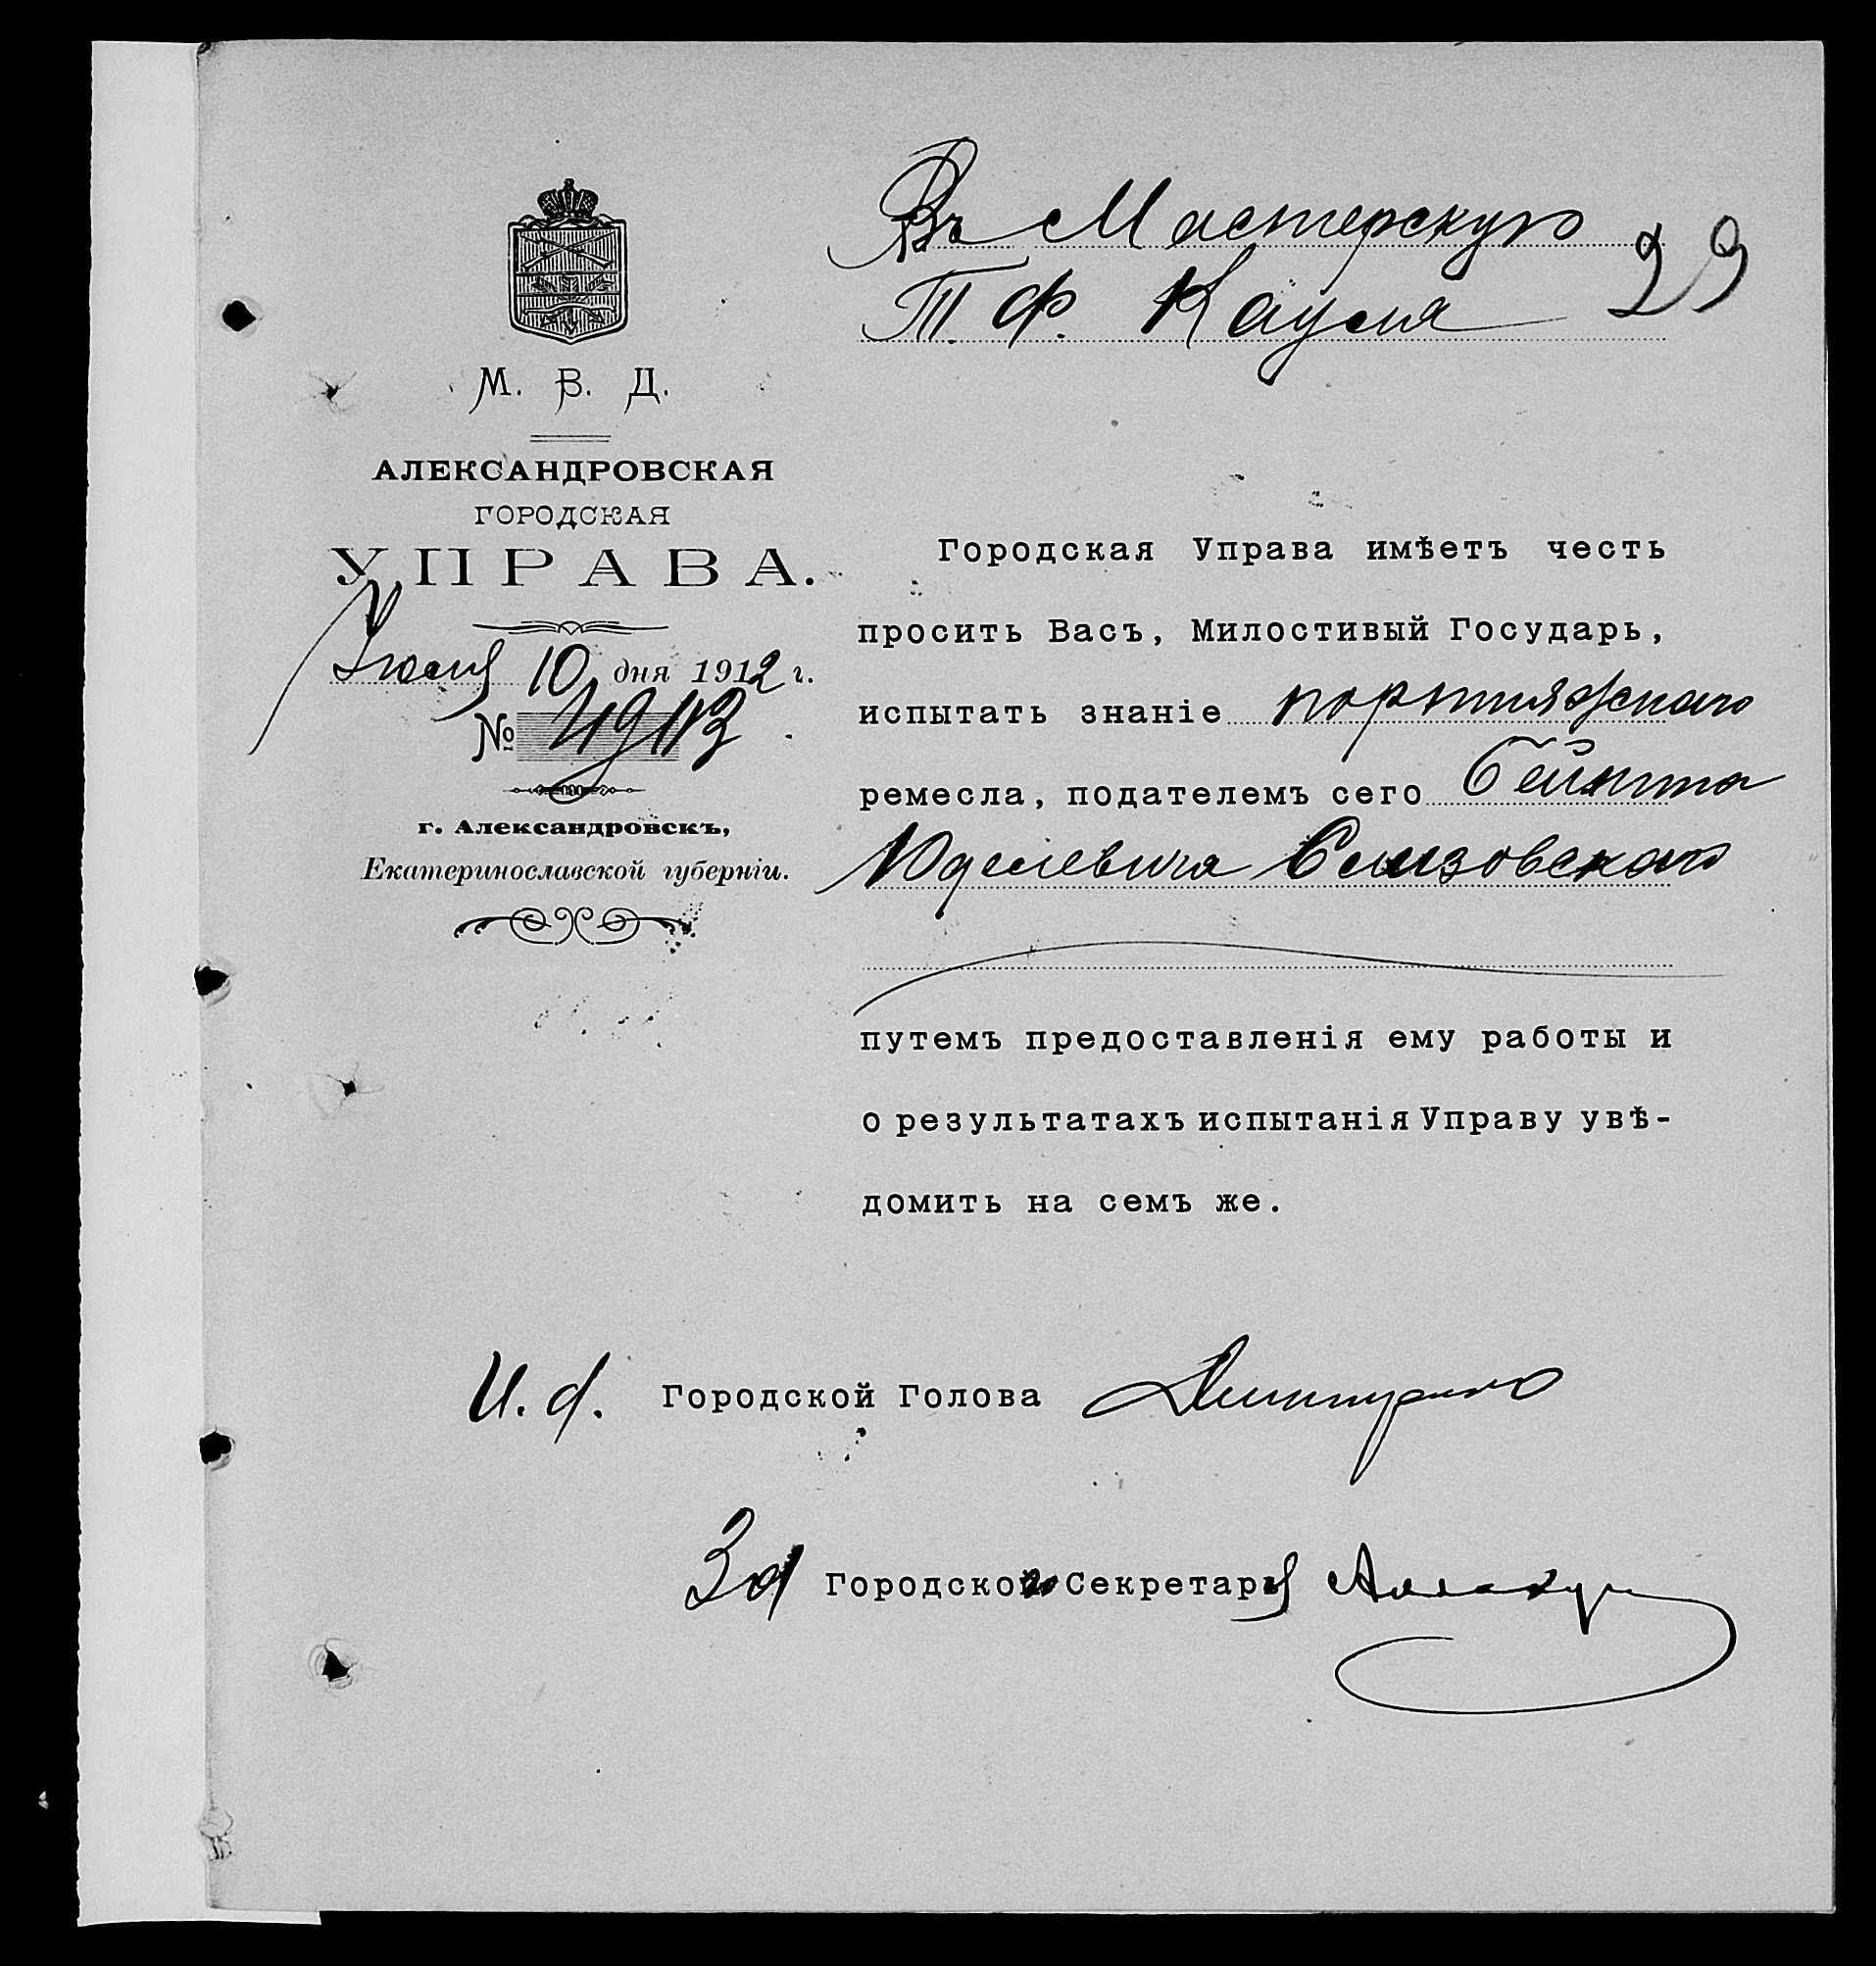 Въ Мастерскую
Т. Ф. Кауля
29
М. В. Д.
АЛЕКСАНДРОВСКАЯ
ГОРОДСКАЯ
УПРАВА.
Іюля 10 дня 1912 г.
№ 4903
г. Александровскъ,
Екатеринославской губерніи.
Городская Управа имѣетъ честь
просить Васъ, Милостивый Государь,
испытать знаніе портняжнаго
ремесла, подателемъ сего
Юделевича
путемъ предоставленія ему работы и
о результатахъ испытанія Управу увѣ-
домить на семъ же.
И. д. Городской Голова
За Городского Секретаря